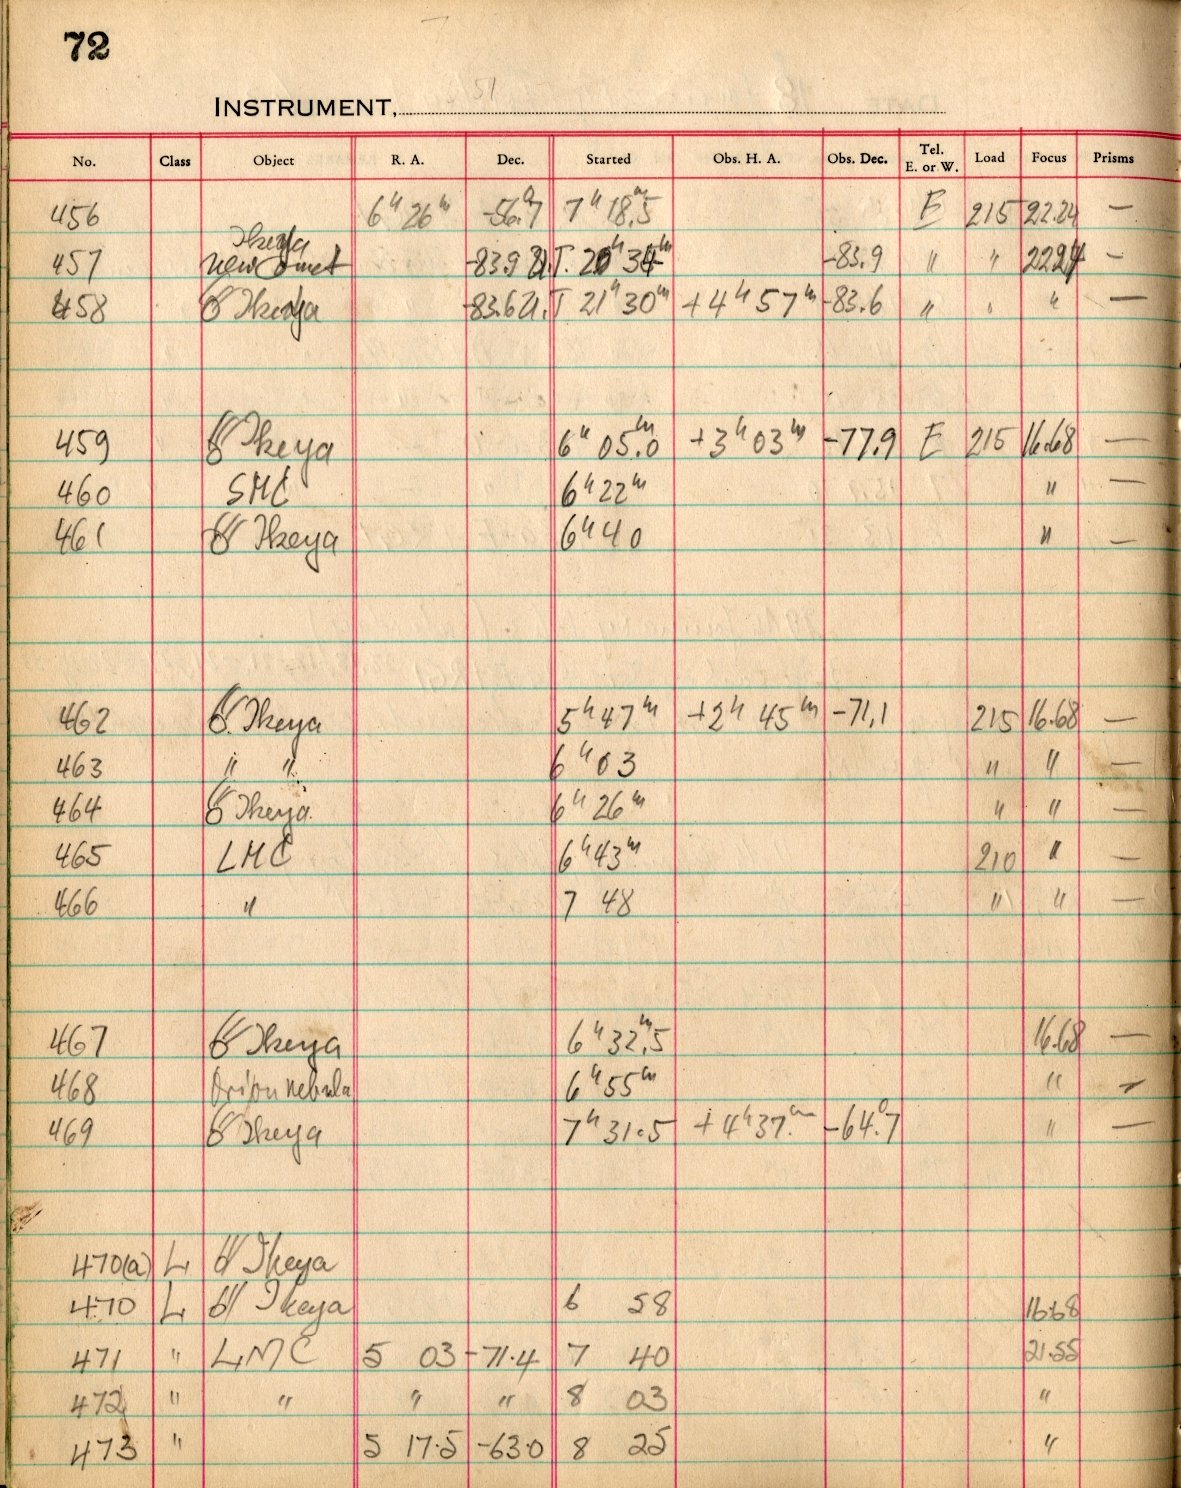 72
51
INSTRUMENT,
No. Class Object R. A. Dec. Started Obs. H. A. Obs. Dec. Tel. E. or W. Load Focus Prisms
456 6ʰ 26ᵐ -56.°7 7ʰ 18.ᵐ5 E 215 22.24 —
Ikeya
457 New Comet -83.9 U.T. 20ʰ 34ᵐ -83.9 " " 22.24 —
458 ☄ Ikeya -83.6 U.T 21ʰ 30ᵐ +4ʰ 57ᵐ -83.6 " " " —
459 ☄ Ikeya 6ʰ 05.ᵐ0 +3ʰ 03ᵐ -77.9 E 215 16.68 —
460 SMC 6ʰ 22ᵐ " —
461 ☄ Ikeya 6ʰ 40 " —
462 ☄ Ikeya 5ʰ 47ᵐ +2ʰ 45ᵐ -71.1 215 16.68 —
463 " " 6ʰ 03 " " —
464 ☄ Ikeya 6ʰ 26ᵐ " " —
465 LMC 6ʰ 43ᵐ 210 " —
466 " 7 48 " " —
467 ☄ Ikeya 6ʰ 32.ᵐ5 16.68 —
468 Orion Nebula 6ʰ 55ᵐ " —
469 ☄ Ikeya 7ʰ 31.5 +4ʰ 37.ᵐ -64.°7 " —
470(a) L ☄ Ikeya
470 L ☄ Ikeya 6 58 16.68
471 " LMC 5 03 -71.4 7 40 21.55
472 " " " " 8 03 "
473 " 5 17.5 -63.0 8 25 "